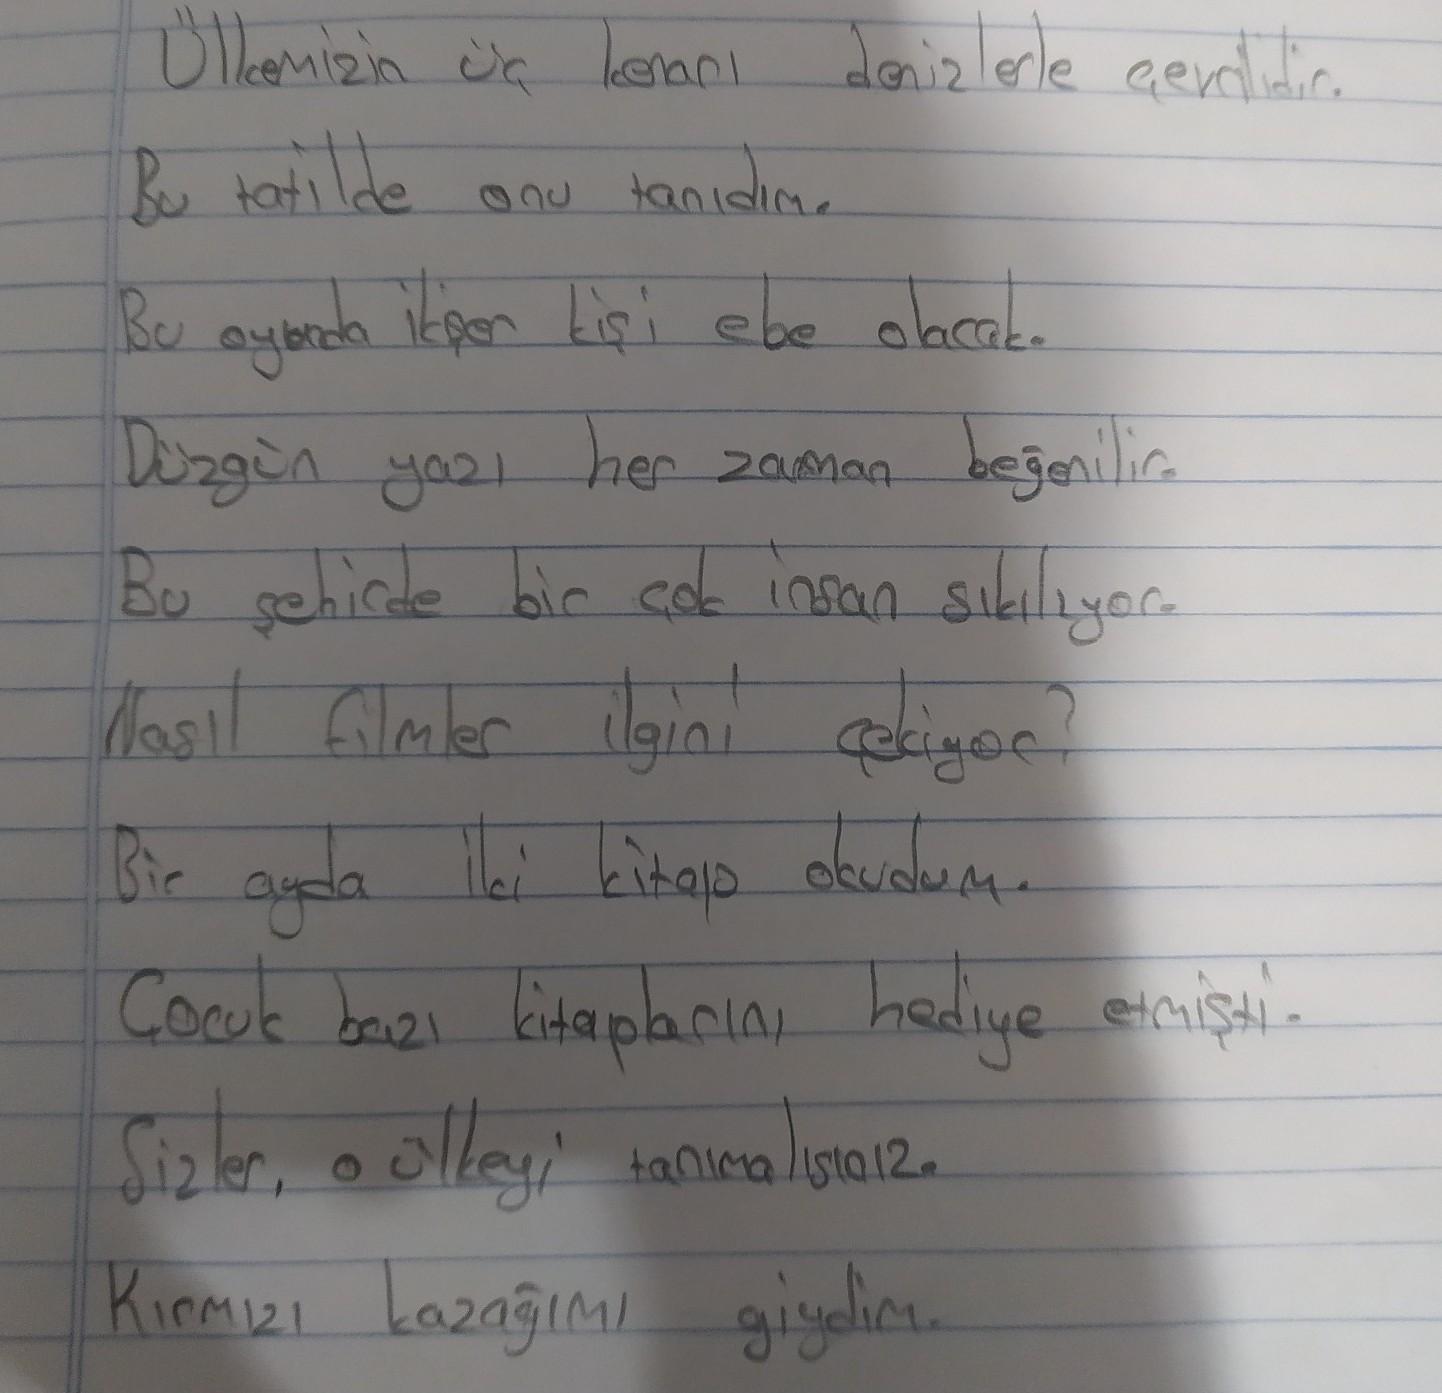 Ülkemizin üç kenarı denizlerle çevrilidir.
Bu tatilde onu tanıdım.
Bu oyunda ikişer kişi ebe olacak.
Düzgün yazı her zaman beğenilir.
Bu şehirde bir çok insan sıkılıyor.
Nasıl filmler ilgini çekiyor?
Bir ayda iki kitap okudum.
Çocuk bazı kitaplarını hediye etmişti.
Sizler, o ülkeyi tanımalısınız.
Kırmızı kazağımı giydim.